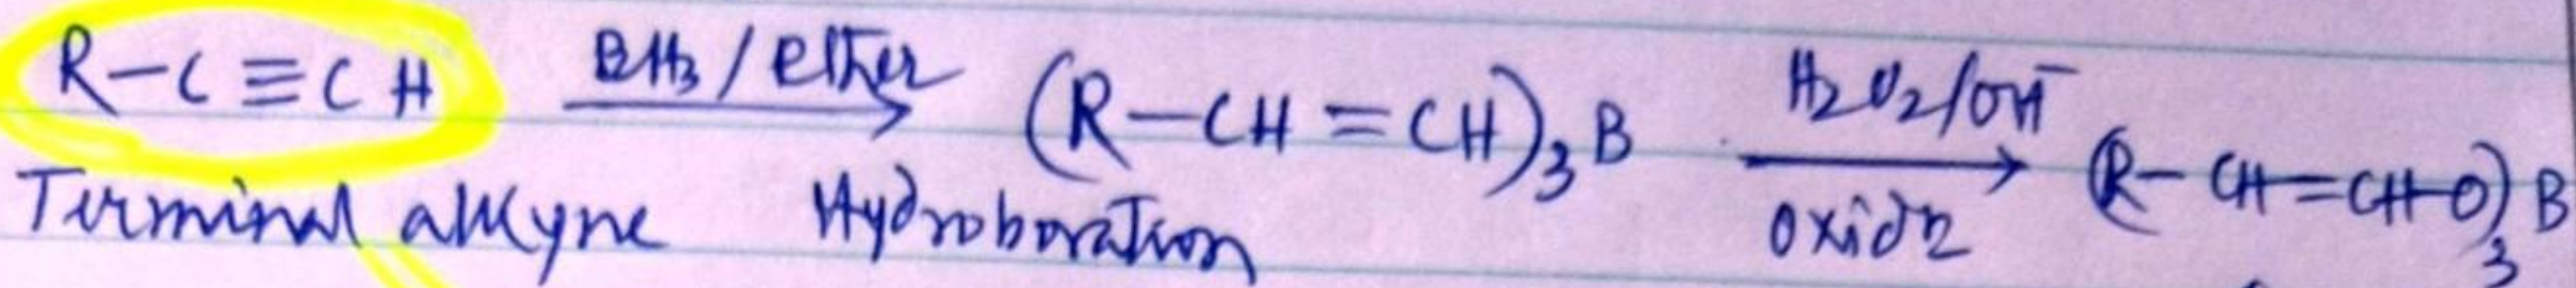 R-C≡CH BH3/ether (R-CH=CH)3B H2O2/OH⁻ (R-CH=CH-O)3B
Terminal alkyne Hydroboration oxidn